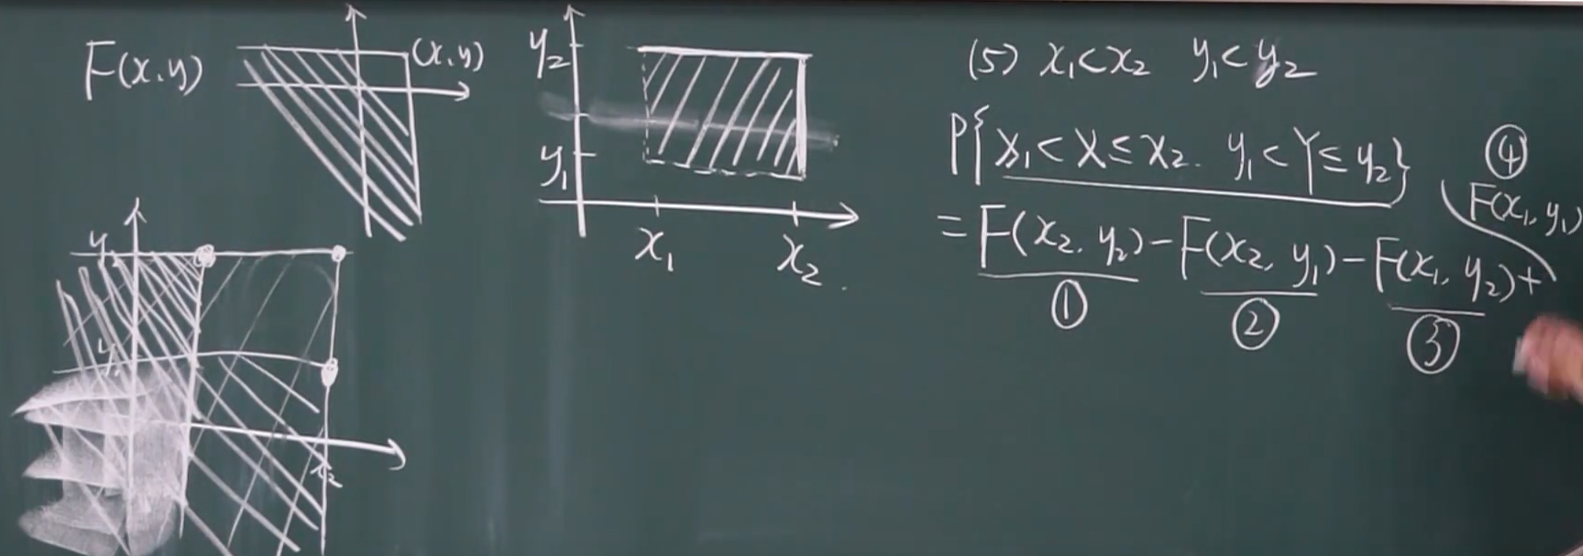 F(x,y)
(x,y)
y₂
y₁
x₁
x₂
y₂
y₁
x₂
(5) x₁<x₂ y₁<y₂
P{x₁<X≤x₂. y₁<Y≤y₂}
=F(x₂,y₂)-F(x₂,y₁)-F(x₁,y₂)+
F(x₁,y₁)
① ② ③ ④